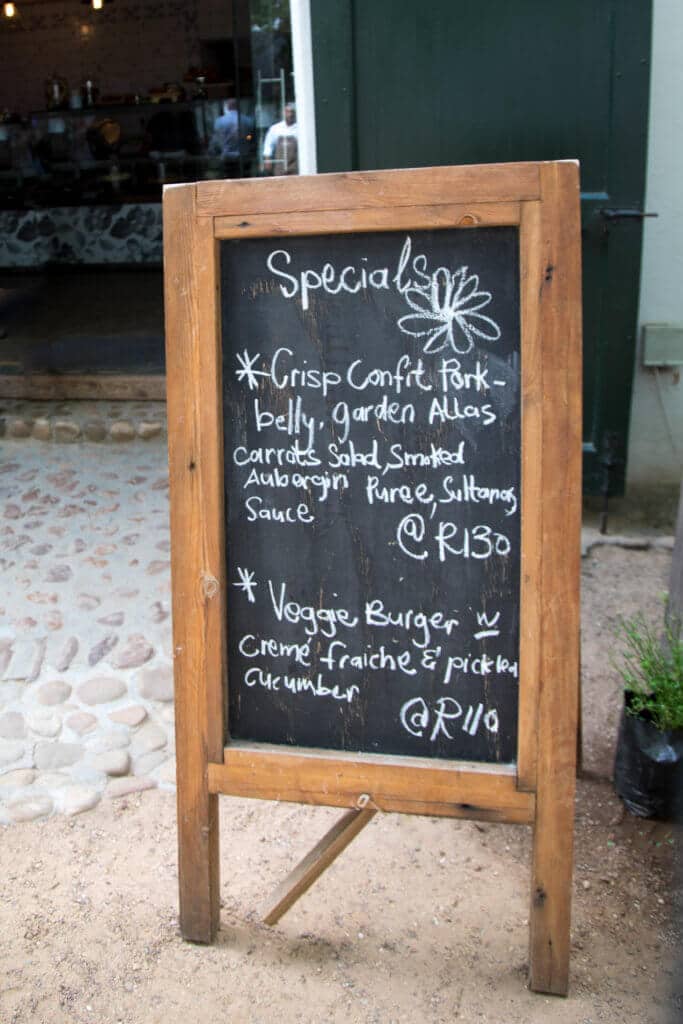 Specials
* Crisp Confit Pork-
belly, garden Allas
carrots Salad, Smoked
Aubergin Puree, Sultanas
Sauce
@R130
* Veggie Burger w
Creme fraiche & pickled
cucumber
@R110